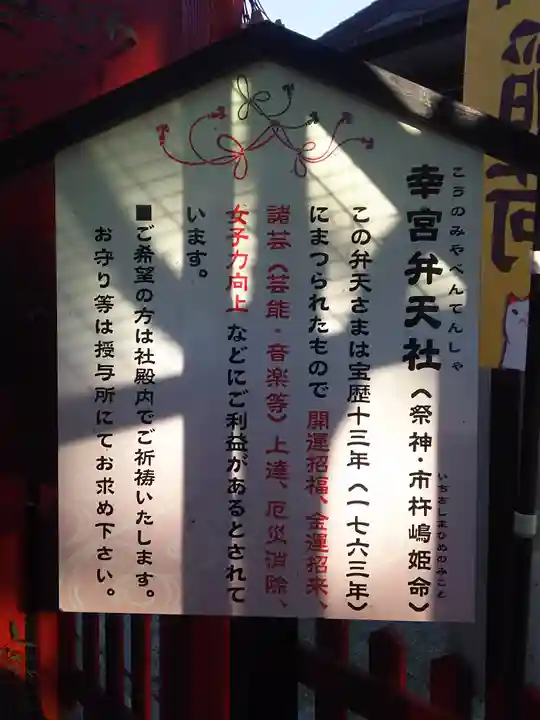 こうのみやべんてんしゃ
幸宮弁天社（祭神・市杵嶋姫命）
いちきしまひめのみこと
この弁天さまは宝歴十三年（一七六三年）
にまつられたもので開運招福、金運招来、
諸芸（芸能・音楽等）上達、厄災消除、
女子力向上などにご利益があるとされて
います。
■ご希望の方は社殿内でご祈祷いたします。
お守り等は授与所にてお求め下さい。
稲荷